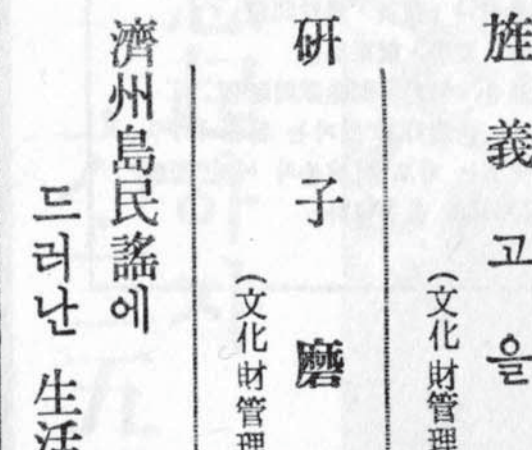 旌義고을
(文化財管理
研子磨
(文化財管理
濟州島民謠에
드러난 生活